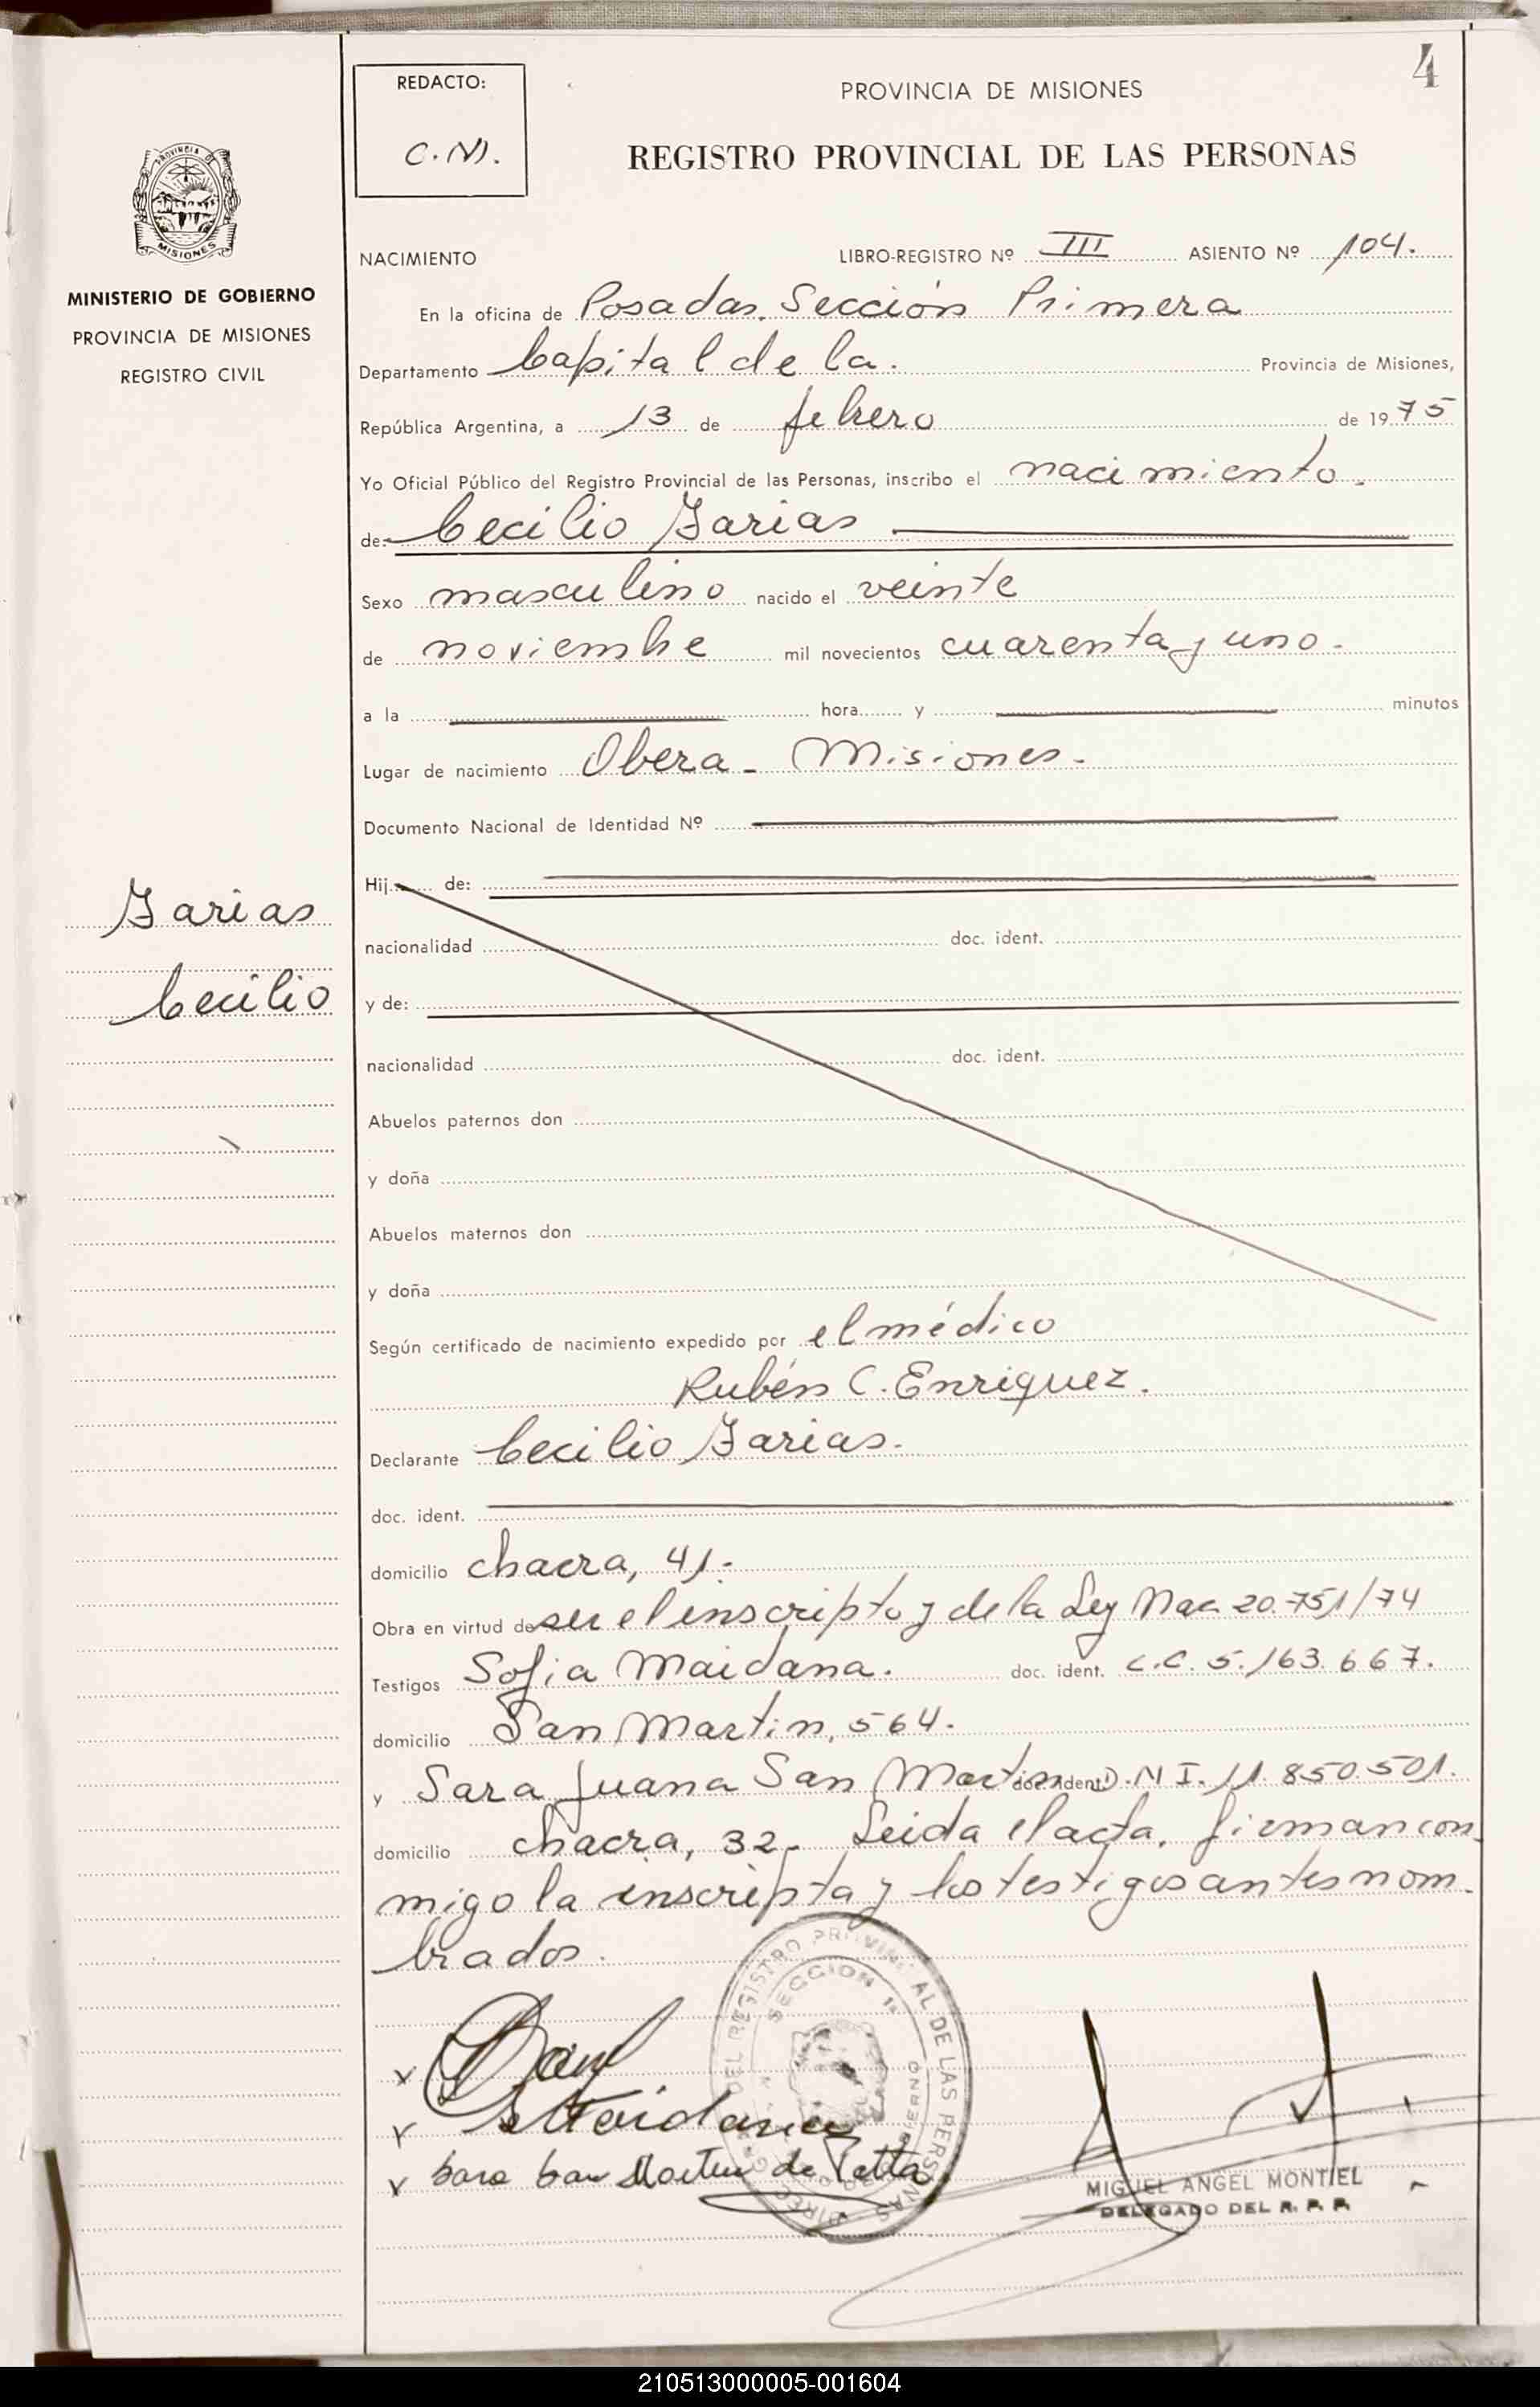 4
REDACTO:
C.N.
PROVINCIA DE MISIONES
REGISTRO PROVINCIAL DE LAS PERSONAS
PROVINCIA DE
MISIONES
MINISTERIO DE GOBIERNO
PROVINCIA DE MISIONES
REGISTRO CIVIL
NACIMIENTO LIBRO-REGISTRO Nº III ASIENTO Nº 104.
En la oficina de Posadas, Sección Primera
Departamento Capital de la. Provincia de Misiones,
República Argentina, a 13 de febrero de 1975
Yo Oficial Público del Registro Provincial de las Personas, inscribo el nacimiento.
de: Cecilio Farias
Sexo masculino nacido el veinte
de noviembre mil novecientos cuarenta y uno.
a la hora y minutos
Lugar de nacimiento Obera - Misiones.
Documento Nacional de Identidad Nº
Hij de:
Farias
nacionalidad doc. ident.
Cecilio
y de:
nacionalidad doc. ident.
Abuelos paternos don
y doña
Abuelos maternos don
y doña
Según certificado de nacimiento expedido por el médico
Rubén C. Enriquez.
Declarante Cecilio Farias.
doc. ident.
domicilio chacra, 41.-
Obra en virtud de ser el inscripto y de la Ley Nac 20.751/74
Testigos Sofia Maidana. doc. ident. L.C. 5.163.667.
domicilio San Martin, 564.
y Sara Juana San Martin doc. ident. D.N I. 11.850.501.
domicilio chacra, 32. Leida el acta, firman con
migo la inscripta y los testigos antes nom-
brados.
DEL REGISTRO PROVINCIAL DE LAS PERSONAS
SECCION 1ª
SMaidana
Sara San Martin de Tetta
MIGUEL ANGEL MONTIEL
DELEGADO DEL R. P. P.
210513000005-001604